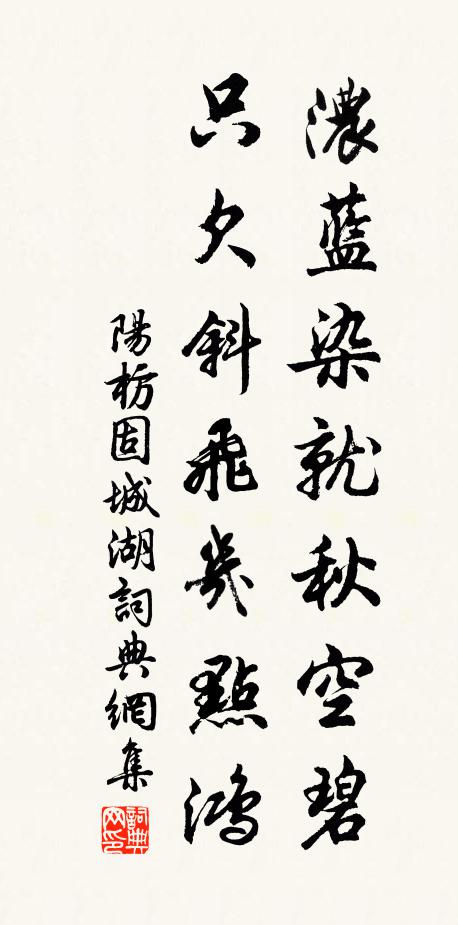 濃藍染就秋空碧
只欠斜飛幾點鴻
陽枋固城湖詞典網集
詞典网印